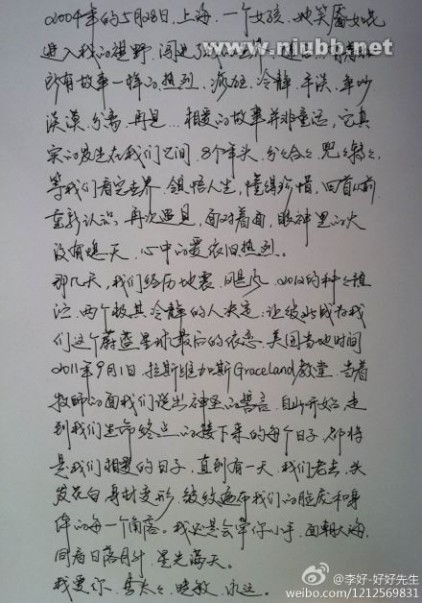 2004年的5月28日，上海，一个女孩，她笑靥如花
www.niubb.net
进入我的视野，闯进了我的
所有故事一样的热烈、疯狂、冷静、平淡、争吵
淡漠、分离、再见… 相爱的故事并非童话，它真
实的发生在我们之间，8个年头，分分合合，兜兜转转，
等我们看完世界，领悟人生，懂得珍惜，回首从前，
重新认识，再次遇见，面对着面，眼神里的火
没有熄灭，心中的爱依旧热烈。
那几天，我们经历地震、飓风、2012的种种推
论，两个极其冷静的人决定：让彼此成为我
们这个蔚蓝星球最后的依恋，美国当地时间
2011年9月1日，拉斯维加斯Graceland教堂，当着
牧师的面我们说出神圣的誓言，自此开始，走
到我们生命终点的接下来的每个日子，都将
是我们相爱的日子，直到有一天，我们老去，头
发花白，身材变形，皱纹遍布我们的脸庞和身
体的每一个角落。我必是会牵你小手，面朝大海，
同看日落月升，星光满天。
我爱你，李太太，晓敏，永远。
@李好-好好先生
weibo.com/1212569831